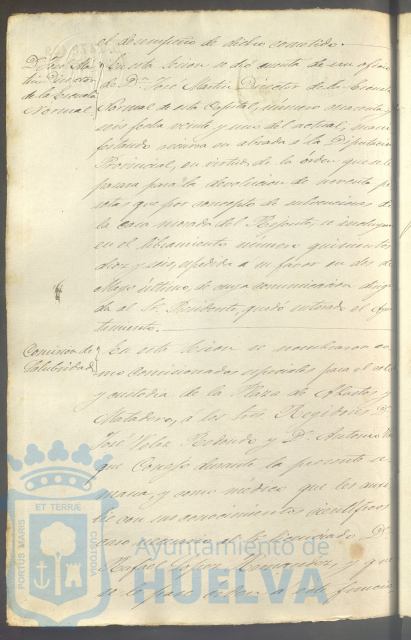 el desempeño de dicho cometido.
Dn. José Martin Director de la Escuela Normal
En esta sesion se dió cuenta de un oficio
de Dn. José Martin, Director de la Escuela
Normal de esta Capital, número cuarenta y
seis fecha veinte y uno del actual, mani-
festando acudia en alzada á la Diputacion
Provincial, en virtud de la órden que se le
pasara para la devolucion de noventa pe-
setas que por concepto de subvenciones de
la casa morada del Regente, se incluyen
en el libramiento número quinientos
diez y seis, espedido a su favor en dos de
Mayo último, de cuya comunicacion dirigi-
da al Sr. Presidente, quedó enterado el Ayun-
tamiento.
Comision de Salubridad
En esta sesion se nombraron co-
mo comisionados especiales para el celo
y custodia de la Plaza de Abastos y
Matadero, á los Sres. Regidores Dn.
José Velez Redondo y Dn. Antonio
que Conejo durante la presente se-
mana, y como médico que les auxi-
lie con sus conocimientos científicos
caso necesario al Licenciado Dn.
Rafael Lopez Hernandez, y que
se le pase á
PORTUS MARIS
ET TERRÆ
CUSTODIA
Ayuntamiento de
HUELVA